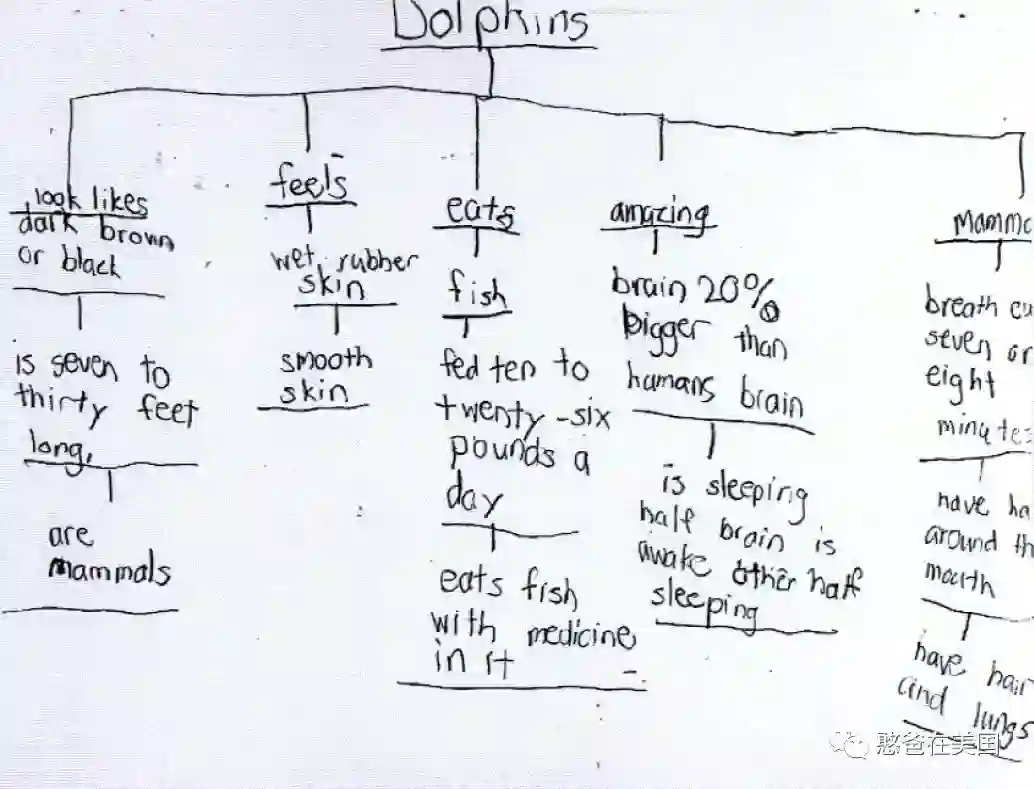 Dolphins
look likes
dark brown
or black
is seven to
thirty feet
long.
are
mammals
feels
wet, rubber
skin
smooth
skin
eats
fish
fed ten to
twenty-six
pounds a
day
eats fish
with medicine
in it
amazing
brain 20%
bigger than
humans brain
is sleeping
half brain is
awake other half
sleeping
breath
seven or
eight
minutes
have
around
mouth
have hair
and lungs
憨爸在美国